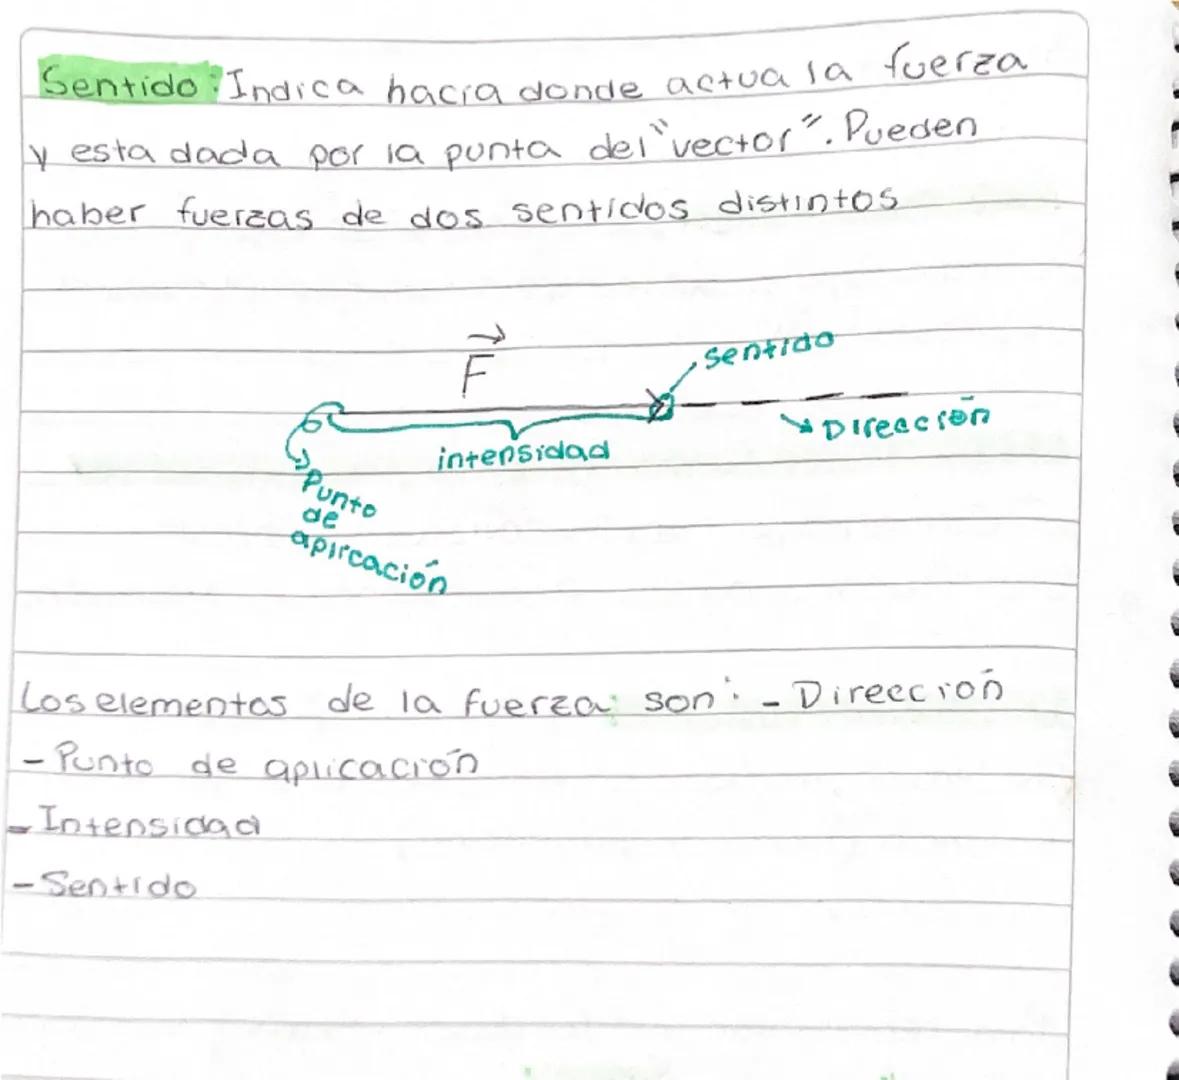 Sentido: Indica hacia donde actua la fuerza
y esta dada por la punta del "vector". Pueden
haber fuerzas de dos sentidos distintos
F
sentido
Dirección
intensidad
Punto
de
aplicación
Los elementos de la fuerza son: - Dirección
- Punto de aplicación
- Intensidad
- Sentido